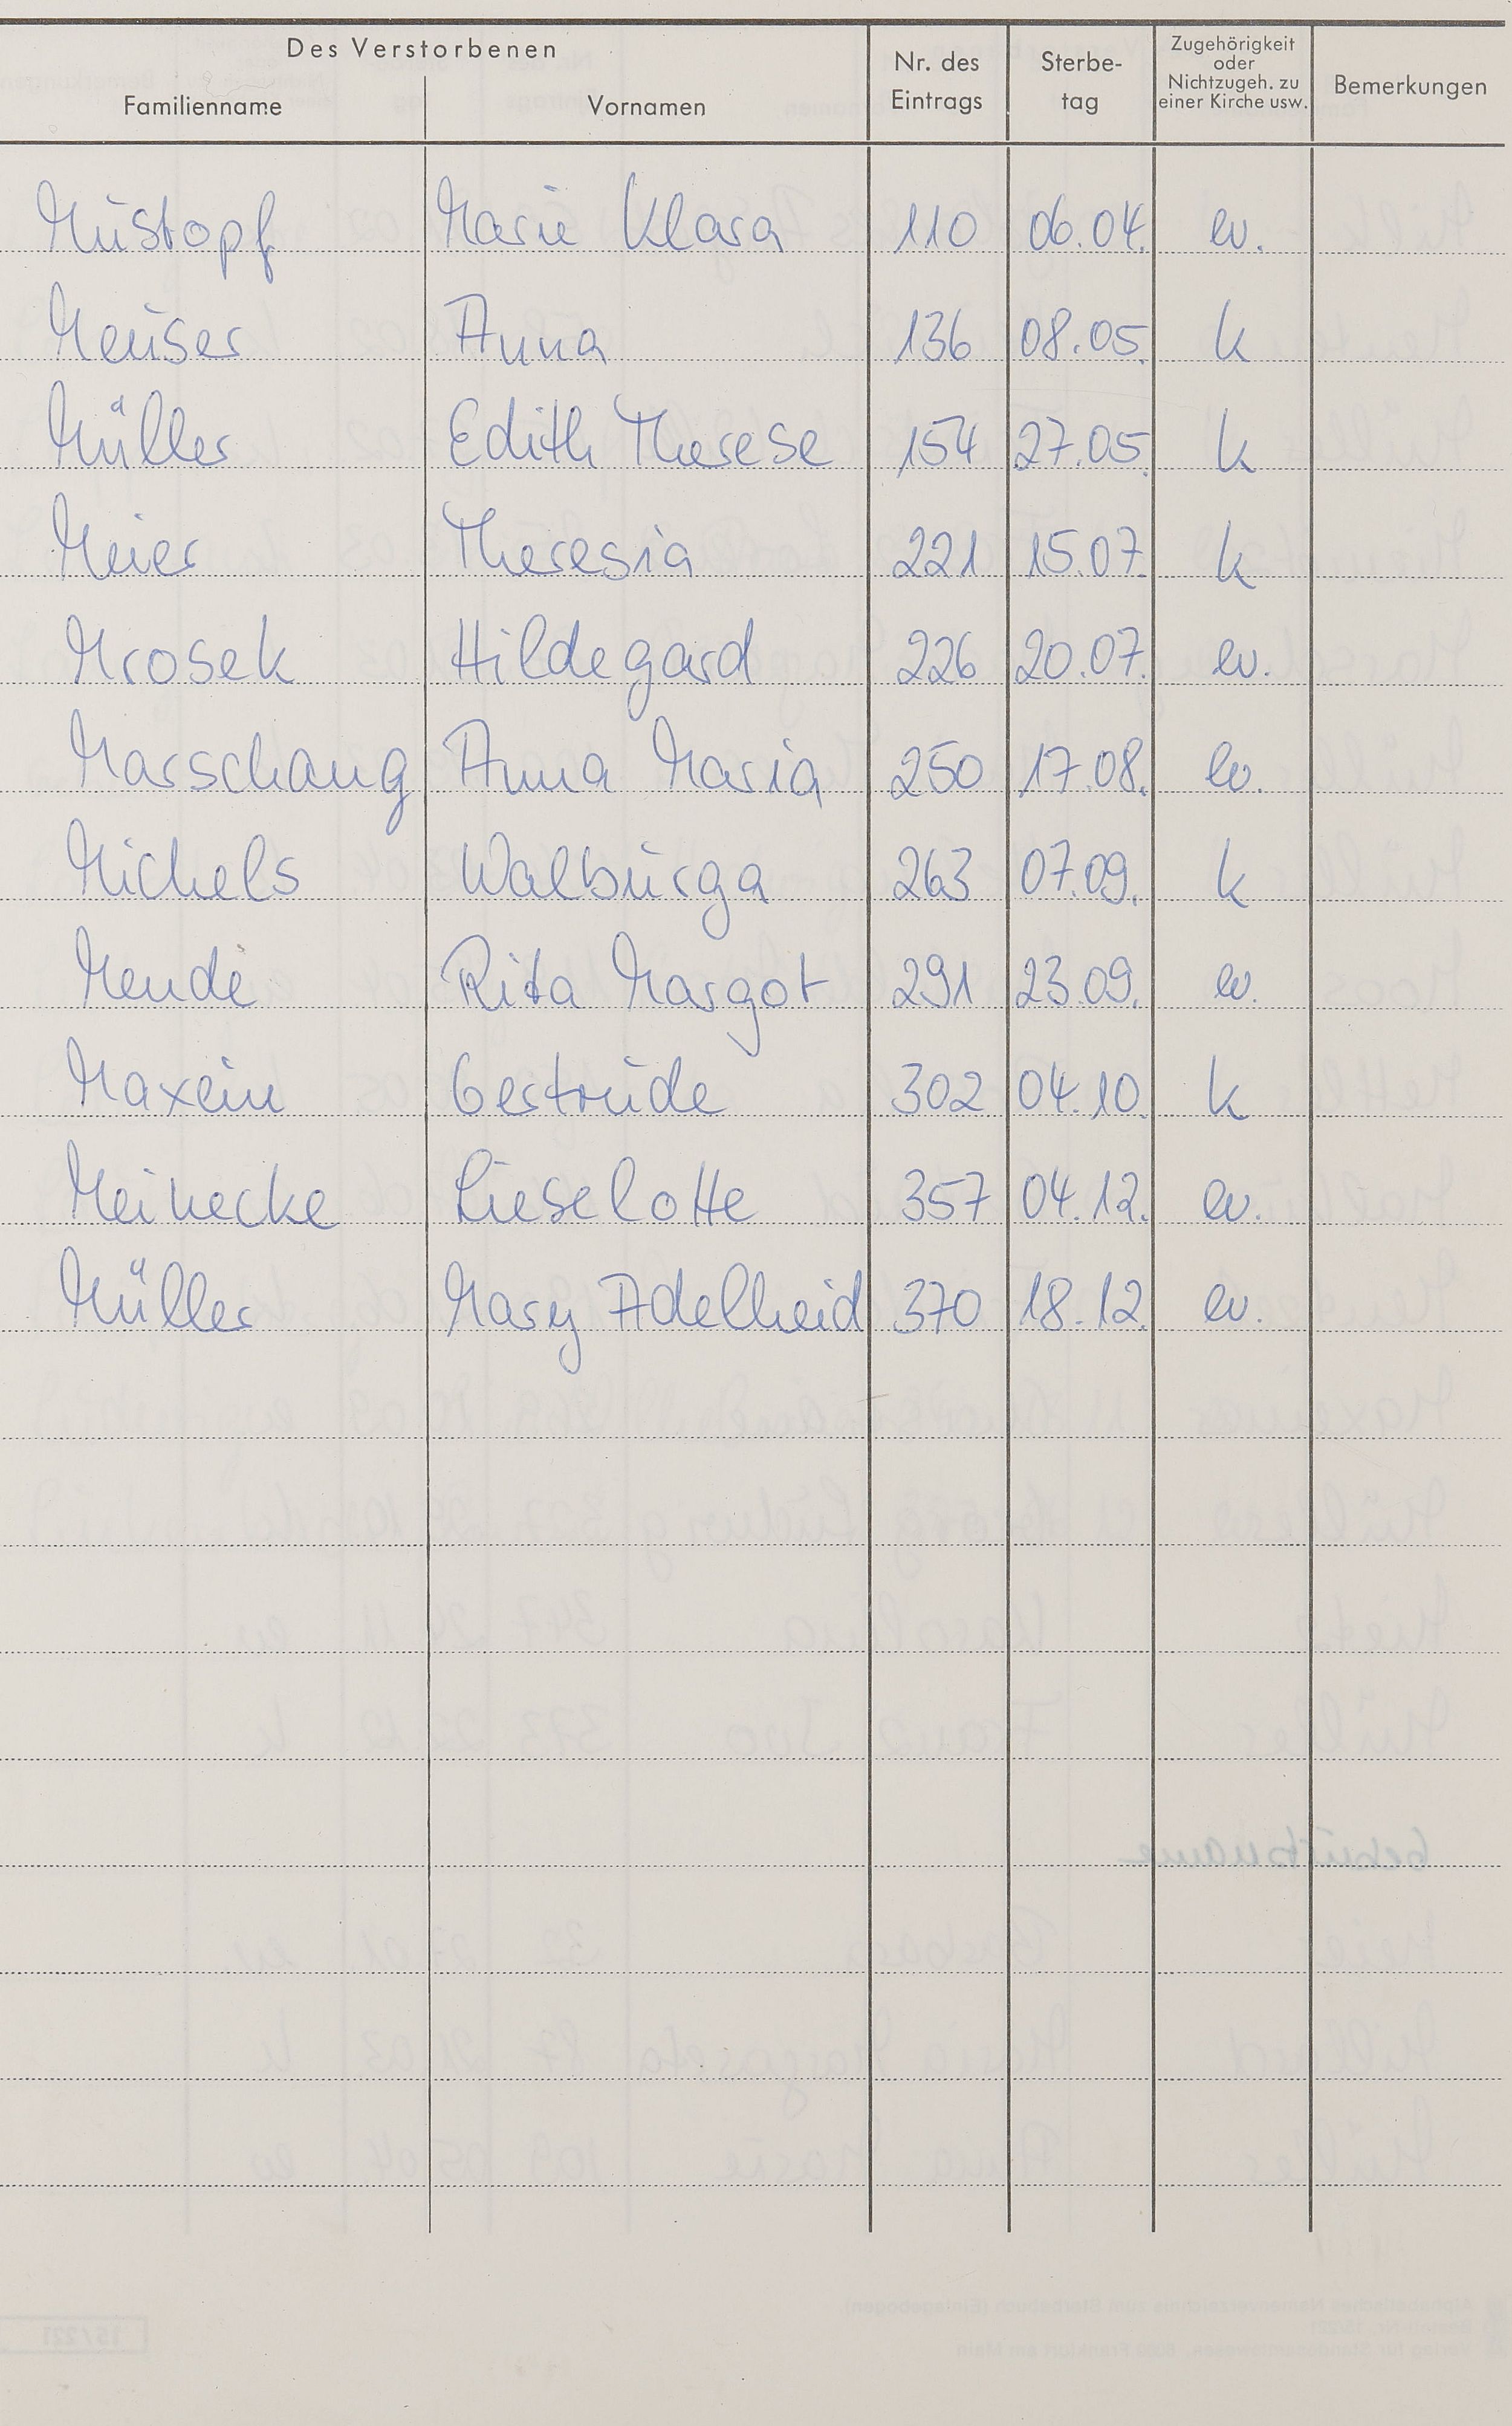 Des Verstorbenen
Familienname Vornamen Nr. des Eintrags Sterbe-tag Zugehörigkeit oder Nichtzugeh. zu einer Kirche usw. Bemerkungen
Mustopf Marie Klara 110 06.04. ev.
Meuser Anna 136 08.05. k
Müller Edith Therese 154 27.05. k
Meier Theresia 221 15.07. k
Mrosek Hildegard 226 20.07. ev.
Marschang Anna Maria 250 17.08. ev.
Michels Walburga 263 07.09. k
Mende Rita Margot 291 23.09. ev.
Maxein Gertrude 302 04.10. k
Meinecke Lieselotte 357 04.12. ev.
Müller Mary Adelheid 370 18.12. ev.